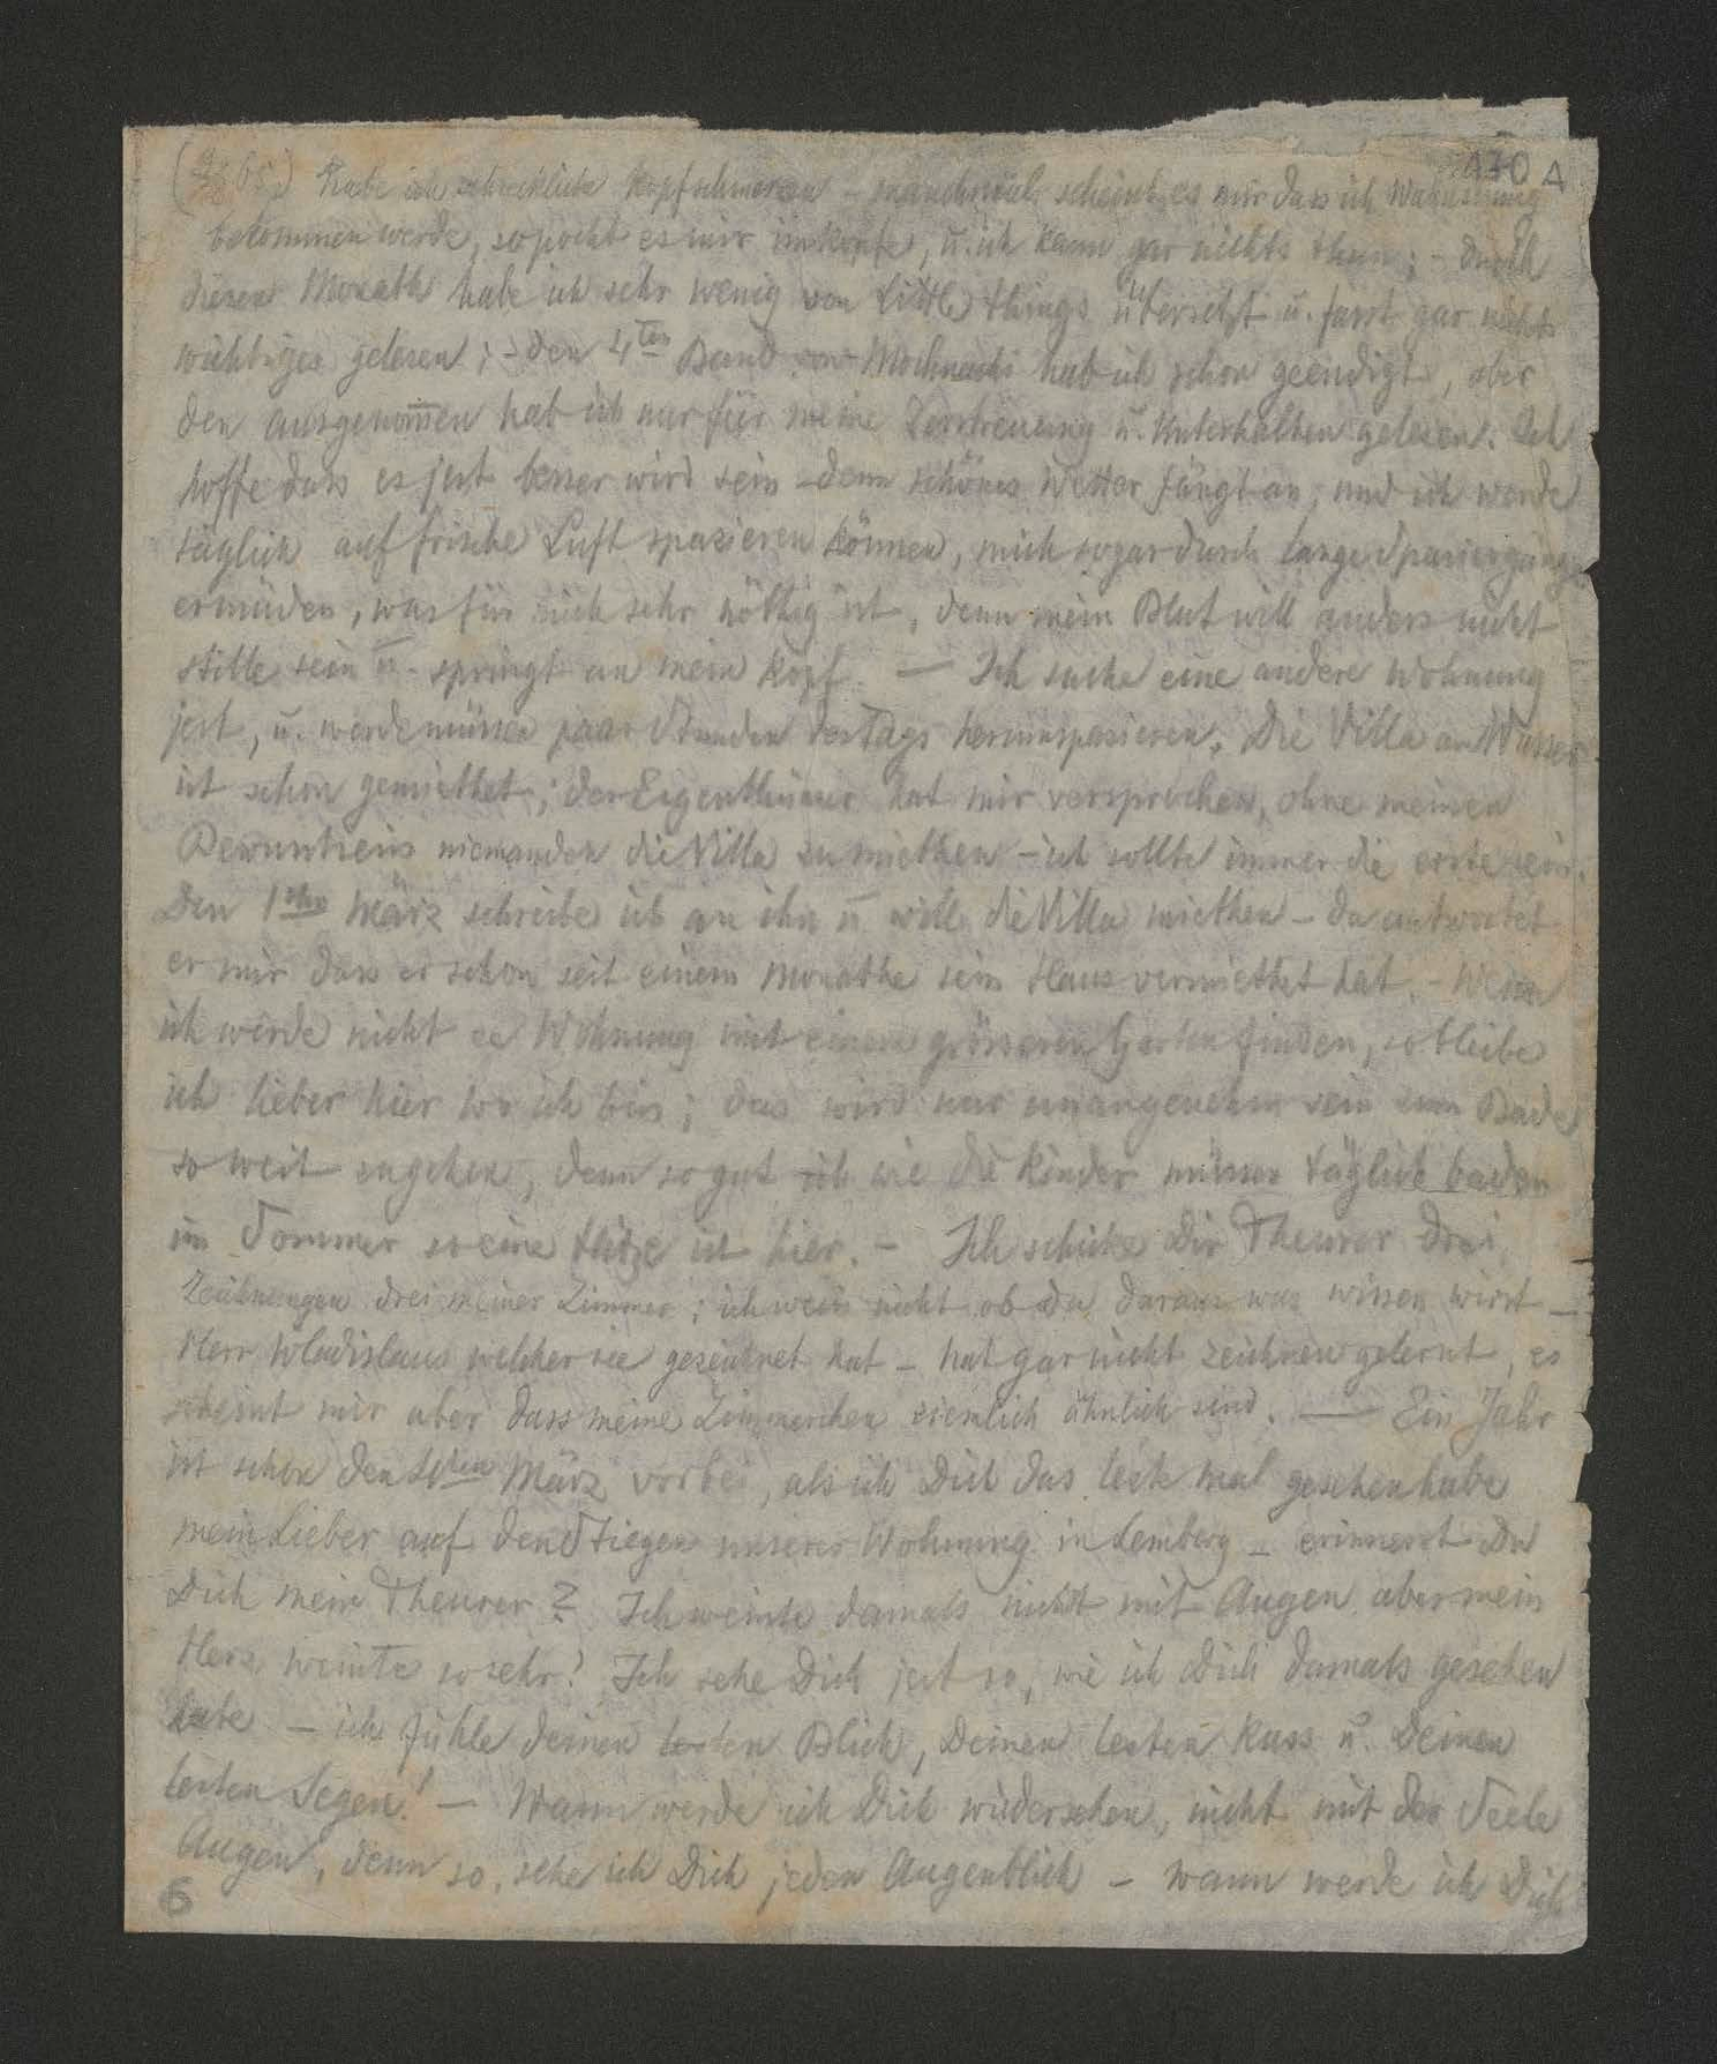 130 A
habe ich schreckliche Kopfschmerzen - manchmal scheint es mir dass ich Wahnsinnig
bekommen werde, so pocht es mir im Kopfe, u. ich kann gar nichts thun; - durch
diesen Monath habe ich sehr wenig von Little things übersetzt u. fasst gar nichts
wichtiges gelesen; - den 4ten Band von Mochnacki hab ich schon geendigt, aber
den ausgenom̄en hab ich nur für meine Zerstreuung u. Unterhalten gelesen. Ich
hoffe dass es jest besser wird sein - denn schönes Wetter fängt an, und ich werde
täglich auf frische Luft spazieren können, mich sogar durch lange Spaziergänge
ermüden, was für mich sehr nöthig ist, denn mein Blut will anders nicht
stille sein u. springt an mein Kopf. — Ich suche eine andere Wohnung
jest, u. werde müssen paar Stunden des Tags herumspazieren. Die Villa an Wasser
ist schon gemiethet; der Eigenthümer hat mir versprochen, ohne meinen
Bewustseins niemanden die Villa zu miethen - ich sollte immer die erste sein.
Den 1sten März schreibe ich an ihn u will die Villa miethen - da antwortet
er mir dass er schon seit einem Monathe sein Haus vermiethet hat. - Wenn
ich werde nicht ee Wohnung mit einem grösseren Garten finden, so bleibe
ich lieber hier wo ich bin; das wird nur unangenehm sein zum Bade
so weit zugehen, denn so gut ich wie die Kinder müssen täglich baden
im Sommer so eine Hitze ist hier. - Ich schicke Dir Theurer drei
Zeichnungen drei meiner Zimmer; ich weis nicht ob du daraus was wissen wirst -
Herr Wladislaus welcher sie gezeichnet hat - hat gar nicht zeichnen gelernt, es
scheint mir aber dass meine Zimmerchen ziemlich ähnlich sind. — Ein Jahr
ist schon den März vorbei, als ich Dich das leste mal gesehen habe
mein Lieber auf den Stiegen unserer Wohnung in Lemberg - erinnerst Du
Dich mein Theurer? Ich weinte damals nicht mit Augen aber mein
Herz weinte so sehr! Ich sehe Dich jest so, wie ich Dich damals gesehen
habe - ich fühle deinen lesten Blick, Deinen lesten Kuss u. Deinen
lesten Segen! — Wann werde ich Dich wiedersehen, nicht mit der Seele
Augen, denn so, sehe ich Dich jeden Augenblick - wann werde ich Dich
6